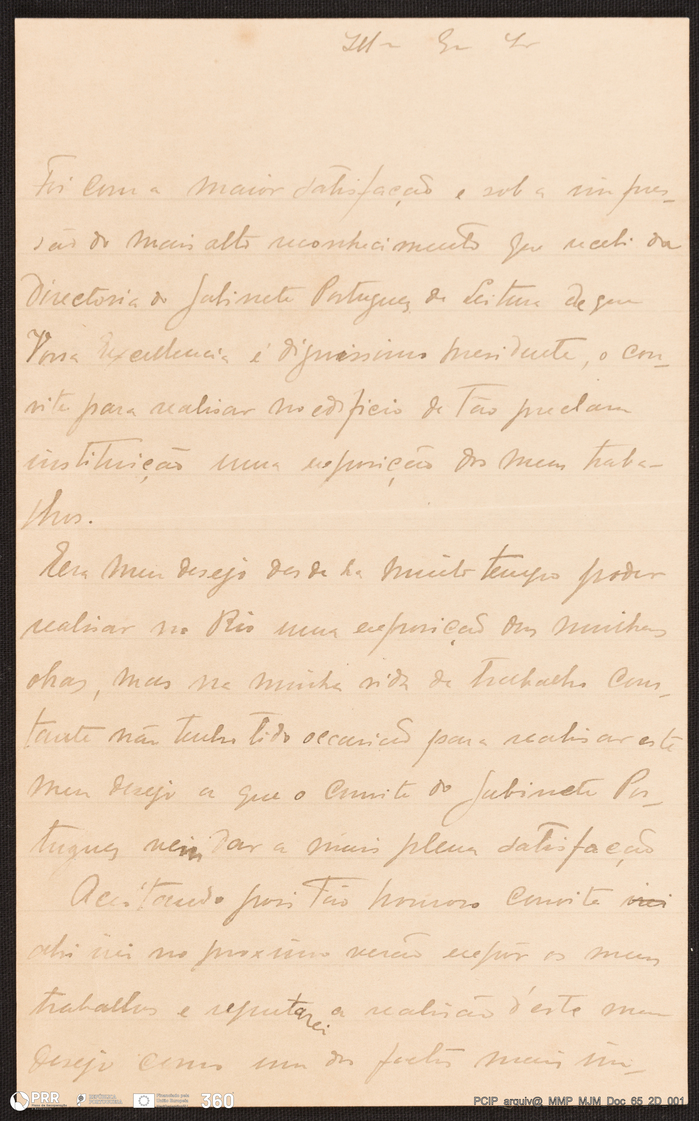 Illmo Exmo Sr
Foi com a maior satisfação e sob a impres-
são do mais alto reconhecimento que recebi da
Directoria do Gabinete Portuguez de Leitura de que
Vossa Excellencia é dignissimo presidente, o con-
vite para realisar no edificio de tão preclara
instituição uma exposição dos meus traba-
lhos.
Era meu desejo desde ha muito tempo poder
realisar no Rio uma exposição das minhas
obras, mas na minha vida de trabalho cons-
tante não tenho tido occasião para realisar este
meu desejo a que o convite do Gabinete Por-
tuguez vem dar a mais plena satisfação
Aceitando pois tão honroso convite irei
ahi irei no proximo verão expôr os meus
trabalhos e reputarei a realisão d'este meu
desejo como um dos factos mais im-
PRR
REPÚBLICA
PORTUGUESA
Financiado pela
União Europeia
360
PCIP_arquiv@_MMP_MJM_Doc_65_2D_001